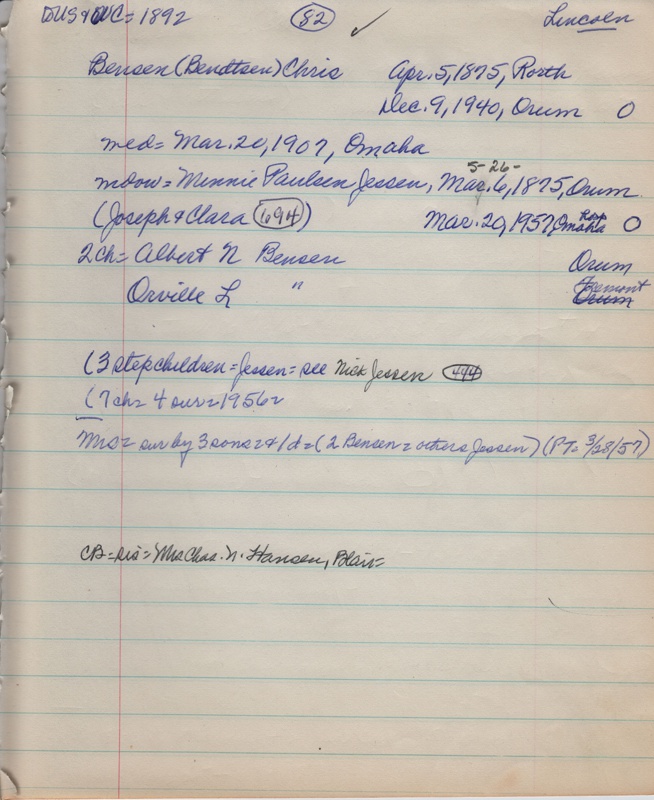 to US & WC = 1892 82 ✓ Lincoln
Bensen (Bendtsen) Chris Apr. 5, 1875, Rorth
Dec. 9, 1940, Orum O
med = Mar. 20, 1907, Omaha
5-26-
mdow = Minnie Paulsen Jessen, Mar. 6, 1875, Orum
(Joseph & Clara 694) Mar. 20, 1957, Omaha Hosp O
2 ch = Albert N Bensen Orum
Orville L " Fremont Orum
(3 stepchildren = Jessen = see Nick Jessen 444
(7 ch = 4 sur = 1956 =
Mrs = sur by 3 sons = & 1 d = (2 Bensen = others Jessen) (PT = 3/28/57)
CB = sis = Mrs Chas. N. Hansen, Blair =